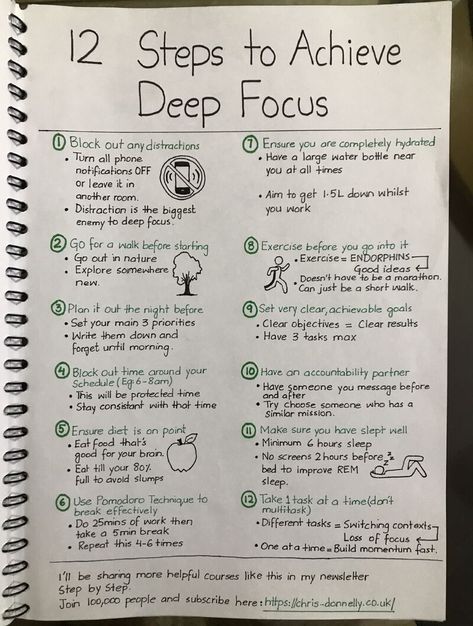 12 Steps to Achieve
Deep Focus
1 Block out any distractions
• Turn all phone
notifications OFF
or leave it in
another room.
• Distraction is the biggest
enemy to deep focus.
2 Go for a walk before starting
• Go out in nature
• Explore somewhere
new.
3 Plan it out the night before
• Set your main 3 priorities
• Write them down and
forget until morning.
4 Block out time around your
Schedule (Eg: 6-8am)
• This will be protected time
• Stay consistant with that time
5 Ensure diet is on point
• Eat food that's
good for your brain.
• Eat till your 80%
full to avoid slumps
6 Use Pomodoro Technique to
break effectively
• Do 25mins of work then
take a 5min break
• Repeat this 4-6 times
7 Ensure you are completely hydrated
• Have a large water bottle near
you at all times
• Aim to get 1.5L down whilst
you work
8 Exercise before you go into it
• Exercise = ENDORPHINS
Good ideas
• Doesn't have to be a marathon.
Can just be a short walk.
9 Set very clear, achievable goals
• Clear objectives = Clear results
• Have 3 tasks max
10 Have an accountability partner
• Have someone you message before
and after
• Try choose someone who has a
similar mission.
11 Make sure you have slept well
• Minimum 6 hours sleep
• No screens 2 hours before
bed to improve REM
sleep.
z z z
12 Take 1 task at a time (don't
multitask)
• Different tasks = Switching contexts
Loss of focus
• One at a time = Build momentum fast.
I'll be sharing more helpful courses like this in my newsletter
Step by Step.
Join 100,000 people and subscribe here: https://chris-donnelly.co.uk/